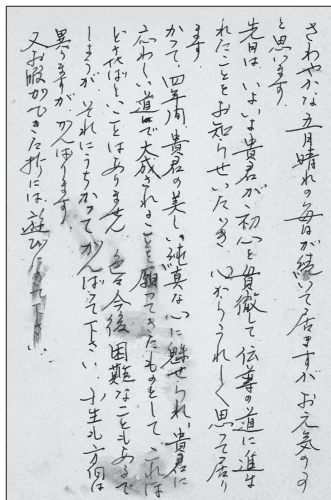 さわやかな五月晴れの毎日が続いて居ますがお元気のの
と思います。
先日は、いよいよ貴君が初心を貫徹して伝導の道に進ま
れたことをお知らせいただき、心からうれしく思って居り
ます
かつて、四年間、貴君の美しい純真な心に魅せられ、貴君に
応わしい道で大成されることを願ってきたものとして、これほ
どさばということはありません。色々今後困難なこともあるで
しょうが、それにうちかってがんばって下さい。小生も方向は
異りますががんばります
又お暇ができた折には、遊びに 下さい。